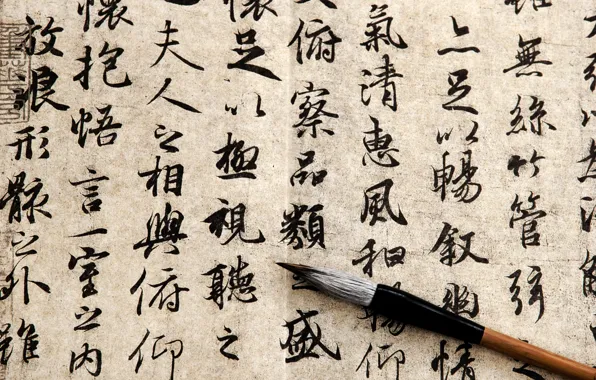 雖無絲竹管弦
亦足以暢敘幽情
氣清惠風和暢仰
俯察品類之盛
懷足以極視聽之
夫人之相與俯仰
懷抱悟言一室之內
放浪形骸之外雖